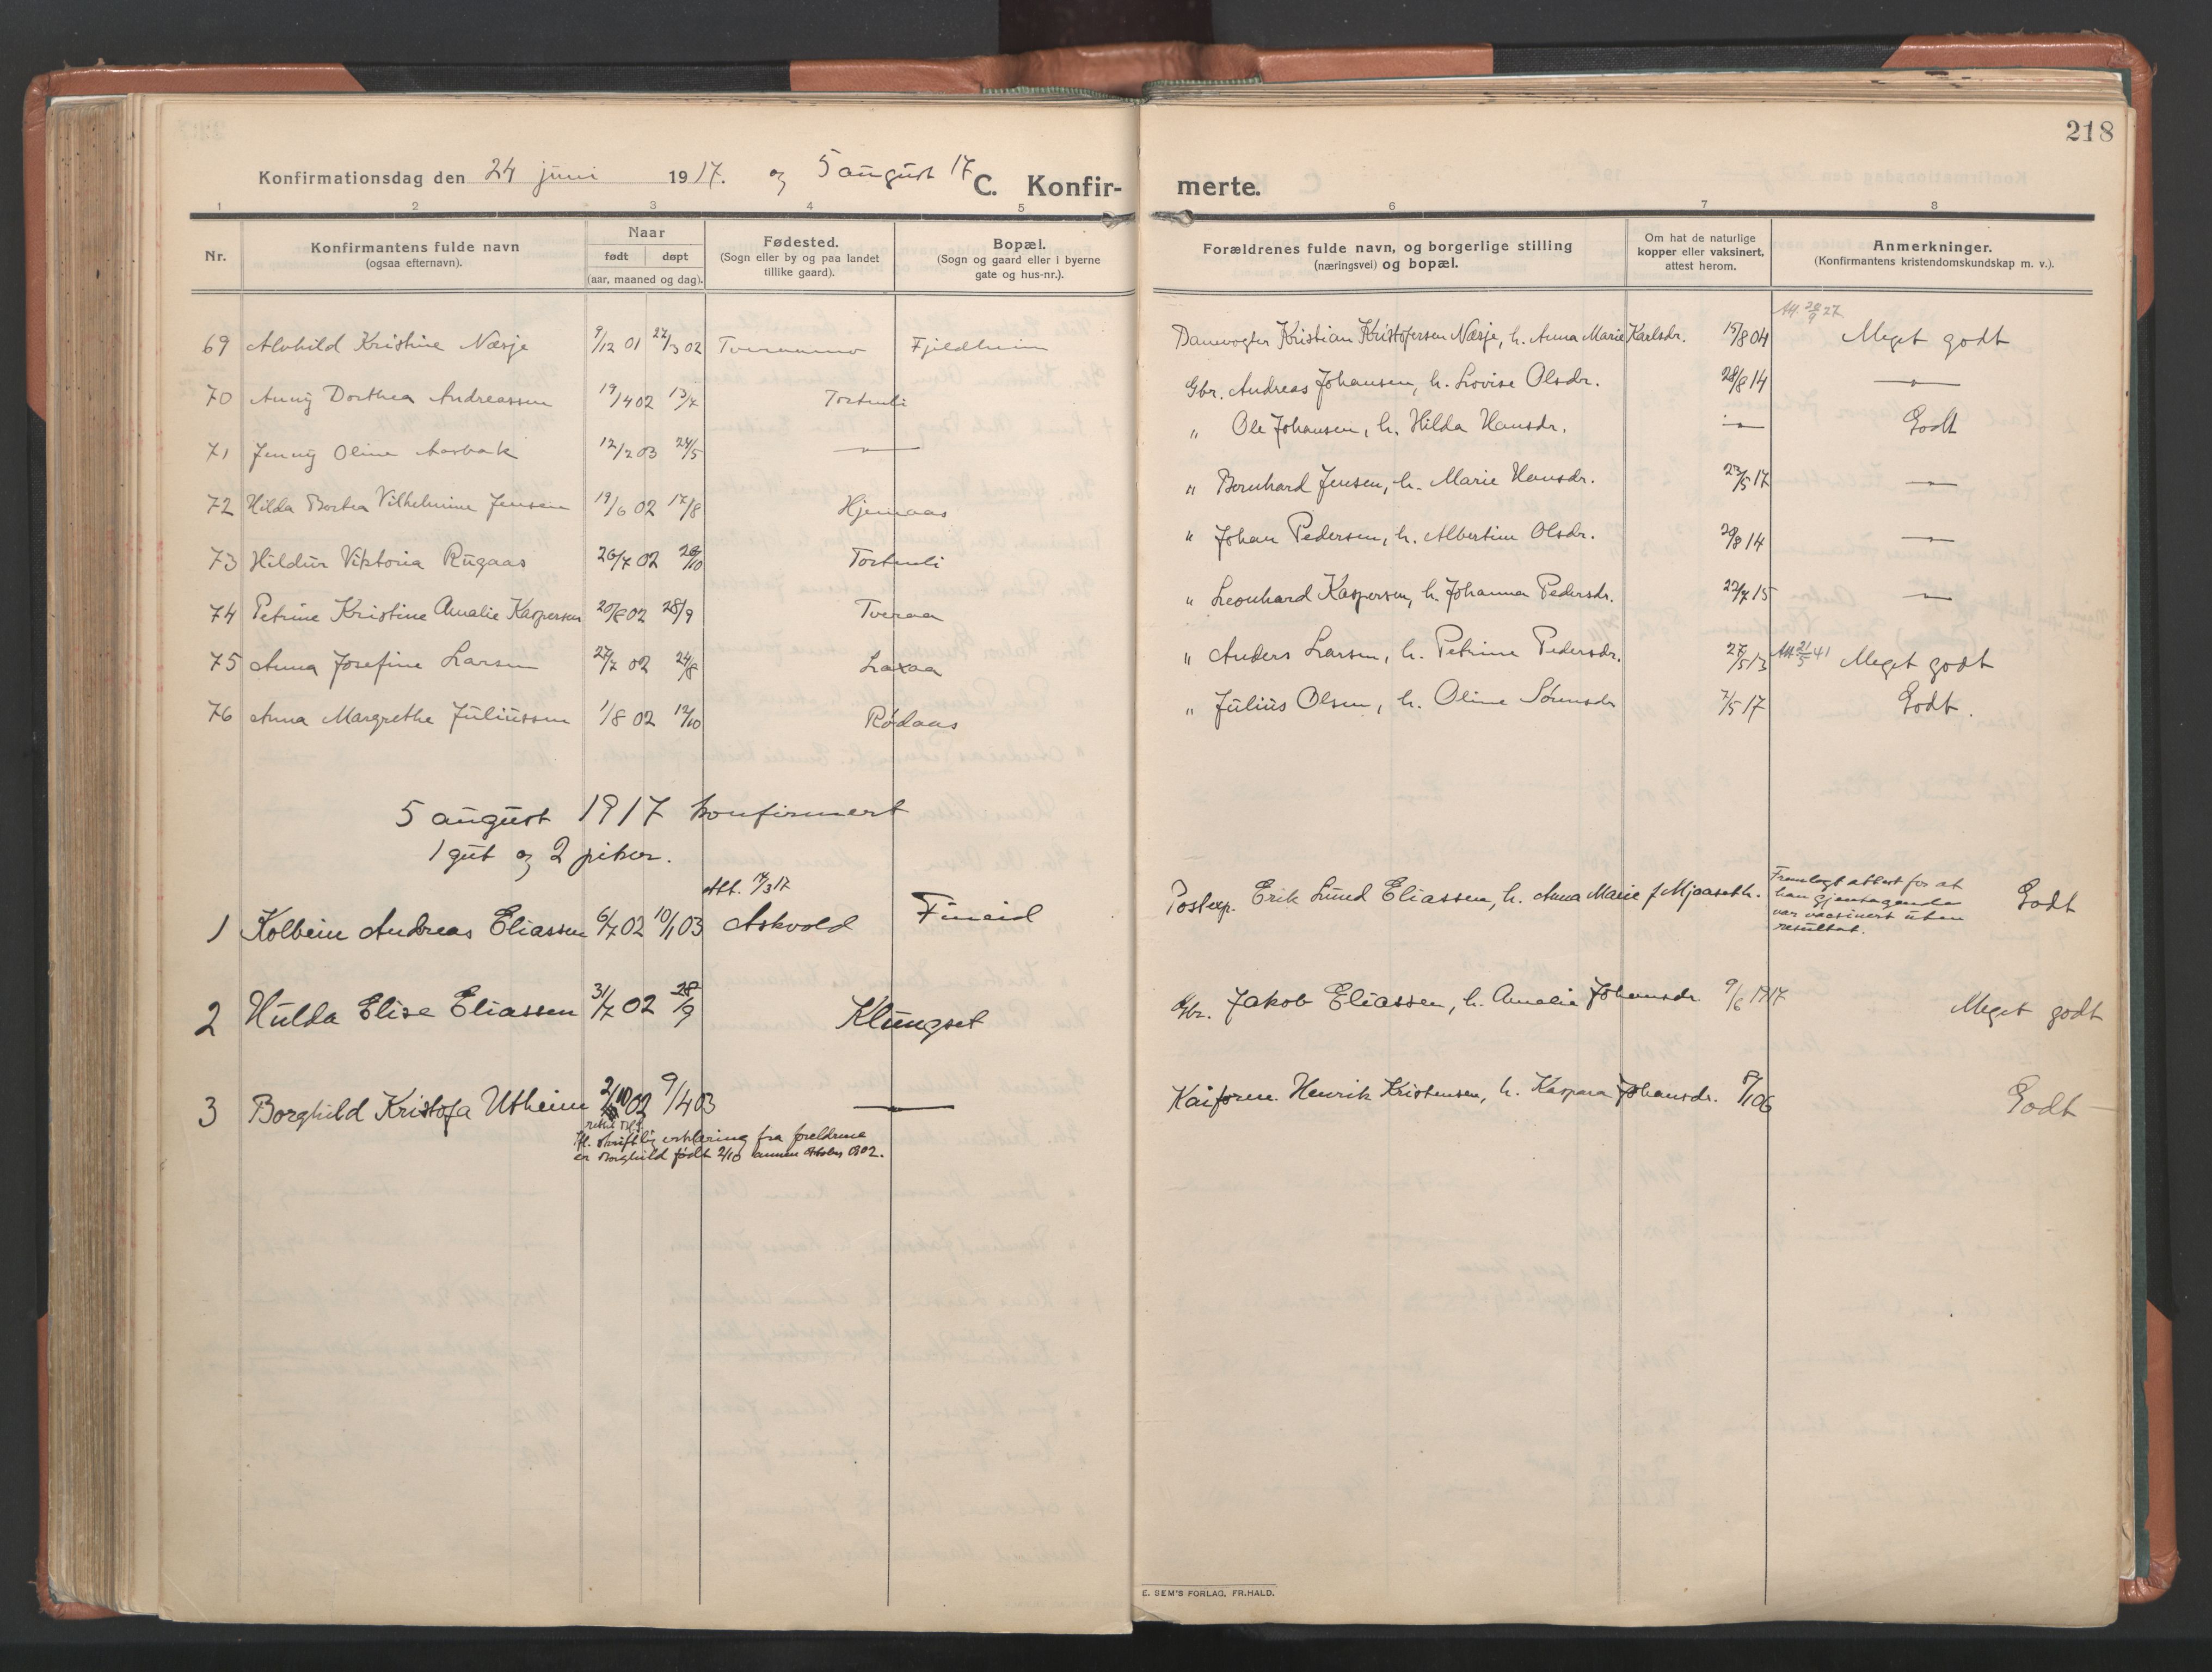 218
Konfirmationsdag den 24 juni 1917. og 5 august 17 C. Konfir- merte.
1 2 3 4 5 6 7 8
Nr. Konfirmantens fulde navn (ogsaa efternavn). Naar født døpt (aar, maaned og dag). Fødested. (Sogn eller by og paa landet tillike gaard). Bopæl. (Sogn og gaard eller i byerne gate og hus-nr.). Forældrenes fulde navn, og borgerlige stilling (næringsvei) og bopæl. Om hat de naturlige kopper eller vaksinert, attest herom. Anmerkninger. (Konfirmantens kristendomskundskap m. v.).
69 Alvhild Kristine Næsje 9/12 01 27/3 02 Tveraamo Fjeldheim Damvogter Kristian Kristofersen Næsje, h. Anna Marie Karlsdr. 15/8 04 Att 20/9 27 Meget godt
70 Anny Dorthea Andreassen 19/4 02 13/7 Tortenli Gbr. Andreas Johansen, h. Lovise Olsdr. 28/8 14 —"—
71 Jenny Oline Aasbak 12/2 03 24/5 —"— " Ole Johansen, h. Hilda Hansdr. —"— Godt
72 Hilda Bertea Vilhelmine Jensen 19/6 02 17/8 Hjemaas " Bernhard Jensen, h. Marie Hansdr. 23/5 17 —"—
73 Hildur Viktoria Rugaas 26/7 02 26/10 Tortenli " Johan Pedersen, h. Albertine Olsdr. 28/8 14 —"—
74 Petrine Kristine Amalie Kaspersen 20/8 02 28/9 Tveraa " Leonhard Kaspersen, h. Johanna Pedersdr. 22/7 15 —"—
75 Anna Josefine Larsen 27/7 02 24/8 Laxaa " Anders Larsen, h. Petrine Pedersdr. 27/5 13 Att 21/5 41 Meget godt
76 Anna Margrethe Juliussen 1/8 02 12/10 Rødaas " Julius Olsen, h. Oline Sørensdr 7/5 17 Godt.
5 august 1917 konfirmert
1 gut og 2 piker.
Att. 14/3 17
1 Kolbein Andreas Eliassen 6/7 02 10/1 03 Askvold Fineid Postexp. Erik Lund Eliassen, h. Anna Marie f Mjaaseth. Fremlagt attest for at
han gjentagende
var vaccinert uten
resultat. Godt
2 Hulda Elise Eliassen 31/7 02 28/9 Klungset Gbr. Jakob Eliassen, h. Amalie Johansdr. 9/6 1917 Meget godt
3 Borghild Kristofa Utheim 2/10 02 9/4 03 —"— Kaiform. Henrik Kristensen, h. Kaspara Johansdr. 8/1 06 Godt
Ifl. skriftlig erklæring fra foreldrene
er Borghild født 2/10 annen oktober 1902.
E. SEM'S FORLAG, FR.HALD.